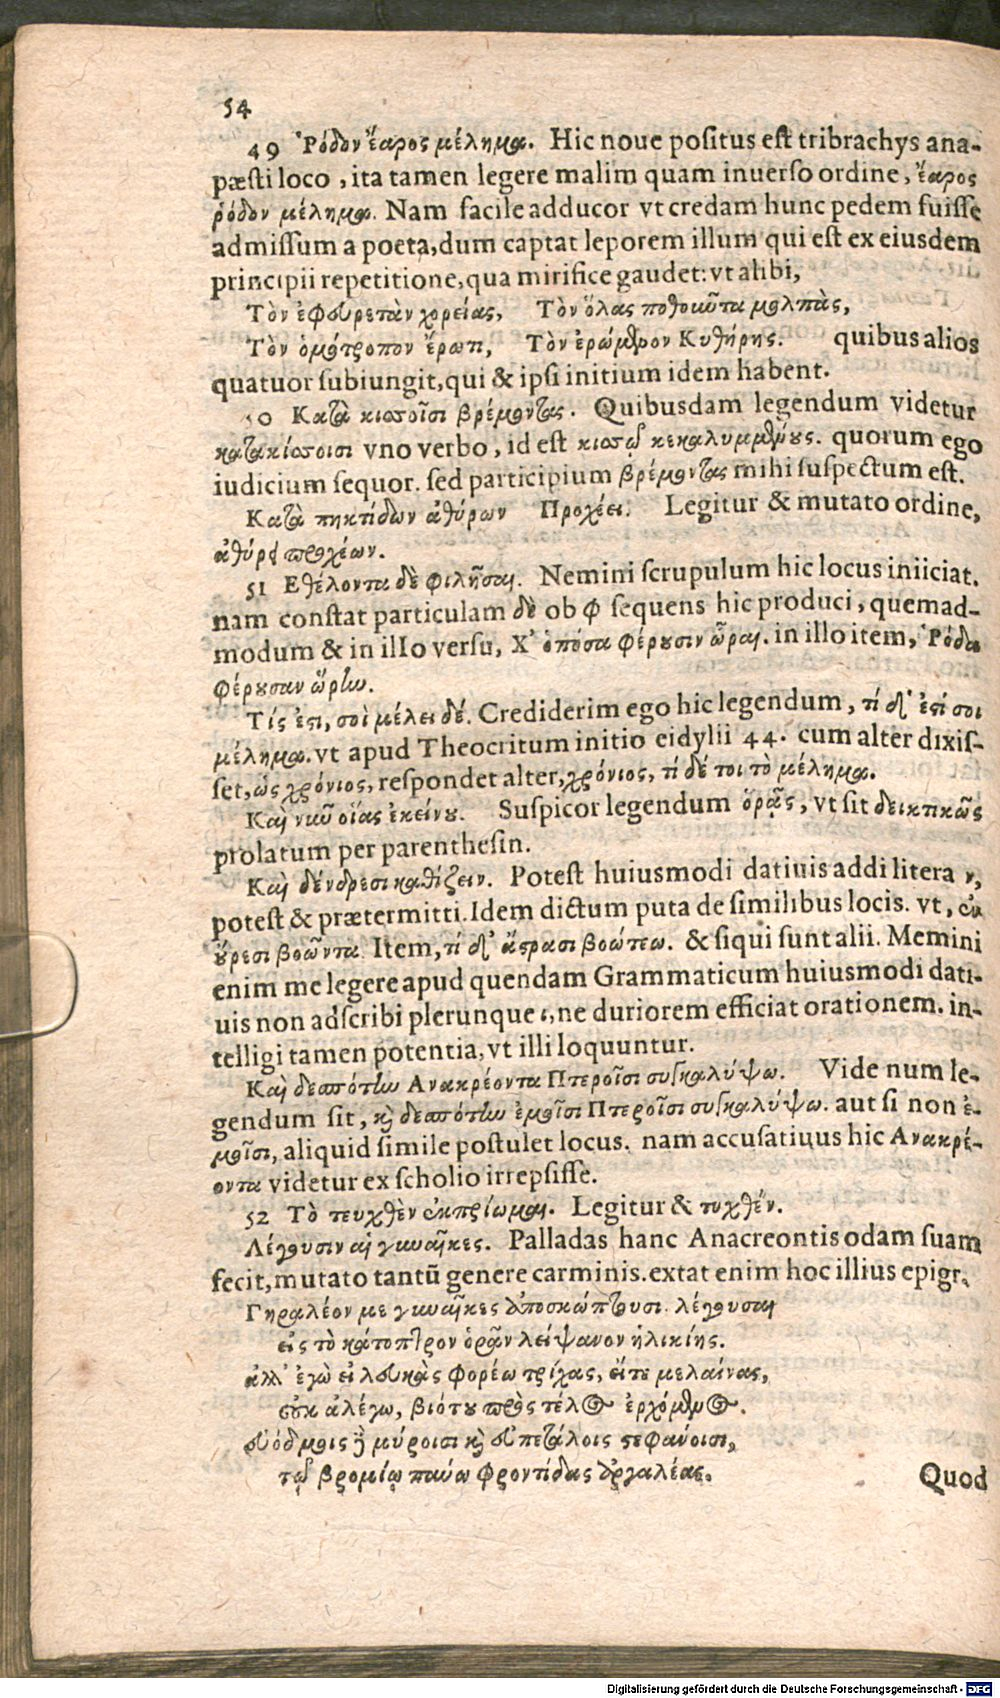 54
49 Ῥόδον ἔαρος μέλημα. Hic noue positus est tribrachys ana-
pæsti loco, ita tamen legere malim quam inuerso ordine, ἔαρος
ῥόδον μέλημα. Nam facile adducor vt credam hunc pedem fuisse
admissum a poeta, dum captat leporem illum qui est ex eiusdem
principii repetitione, qua mirifice gaudet: vt alibi,
Τὸν ἐφευρετὰν χορείας, Τὸν ὅλας ποθοῦντα μολπὰς,
Τὸν ὁμότροπον ἔρωτι, Τὸν ἐρώμενον Κυθήρης. quibus alios
quatuor subiungit, qui & ipsi initium idem habent.
50 Κατὰ κισσοῖσι βρέμοντας. Quibusdam legendum videtur
κατακίσσοισι vno verbo, id est κισσῷ κεκαλυμμένους. quorum ego
iudicium sequor. sed participium βρέμοντας mihi suspectum est.
Κατὰ πηκτίδων ἀθύρων Προχέει. Legitur & mutato ordine,
ἀθύρει προχέων.
51 Εθέλοντα δὲ φιλῆσαι. Nemini scrupulum hic locus iniiciat.
nam constat particulam δὲ ob φ sequens hic produci, quemad-
modum & in illo versu, Χ' ὁπόσα φέρουσιν ὧραι. in illo item, Ῥόδα
φέρουσαν ὥρην.
Τίς ἐστι, σοὶ μέλει δέ. Crediderim ego hic legendum, τί δ' ἐστί σοι
μέλημα. vt apud Theocritum initio eidylii 44. cum alter dixis-
set, ὡς χρόνιος, respondet alter, χρόνιος, τί δέ τοι τὸ μέλημα.
Καὶ νῦν οἵας ἐκείνου. Suspicor legendum ὁρᾷς, vt sit δεικτικῶς
prolatum per parenthesin.
Καὶ δένδρεσι καθίζειν. Potest huiusmodi datiuis addi litera ν,
potest & prætermitti. Idem dictum puta de similibus locis. vt, ἐν
οὔρεσι βοῶντα. Item, τί δ' ἄστρασι βοώτεω. & siqui sunt alii. Memini
enim me legere apud quendam Grammaticum huiusmodi dati-
uis non adscribi plerunque ι, ne duriorem efficiat orationem. in-
telligi tamen potentia, vt illi loquuntur.
Καὶ δεσπότην Ανακρέοντα Πτεροῖσι συγκαλύψω. Vide num le-
gendum sit, καὶ δεσπότην ἐμοῖσι Πτεροῖσι συγκαλύψω. aut si non ἐ-
μοῖσι, aliquid simile postulet locus. nam accusatiuus hic Ανακρέ-
οντα videtur ex scholio irrepsisse.
52 Τὸ τευχθὲν ἐκπρίωμαι. Legitur & τυχθέν.
Λέγουσιν αἱ γυναῖκες. Palladas hanc Anacreontis odam suam
fecit, mutato tantũ genere carminis. extat enim hoc illius epigr.
Γηραλέον με γυναῖκες ἀποσκώπτουσι. λέγουσαι
εἰς τὸ κάτοπτρον ὁρᾶν λείψανον ἡλικίης.
ἀλλ' ἐγὼ εἰ λευκὰς φορέω τρίχας, εἴτε μελαίνας,
οὐκ ἀλέγω, βιότου πρὸς τέλος ἐρχόμενος.
εὐόδμοις δὲ μύροισι καὶ εὐπετάλοις στεφάνοισι,
τῷ βρομίῳ παύω φροντίδας ἀργαλέας.
Quod
Digitalisierung gefördert durch die Deutsche Forschungsgemeinschaft - DFG